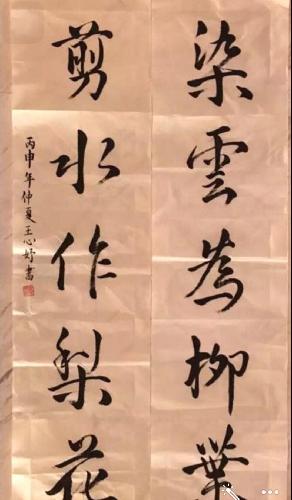 染雲為柳葉
剪水作梨花
丙申年仲夏王心妤書